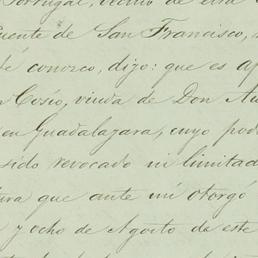 Portugal, vecino de esta
Puente de San Francisco,
conozco, dijo: que es ap
Cosío, viuda de Don Au
en Guadalajara, cuyo pod
sido revocado ni limitad
ura que ante mí otorgó
y ocho de Agosto de este